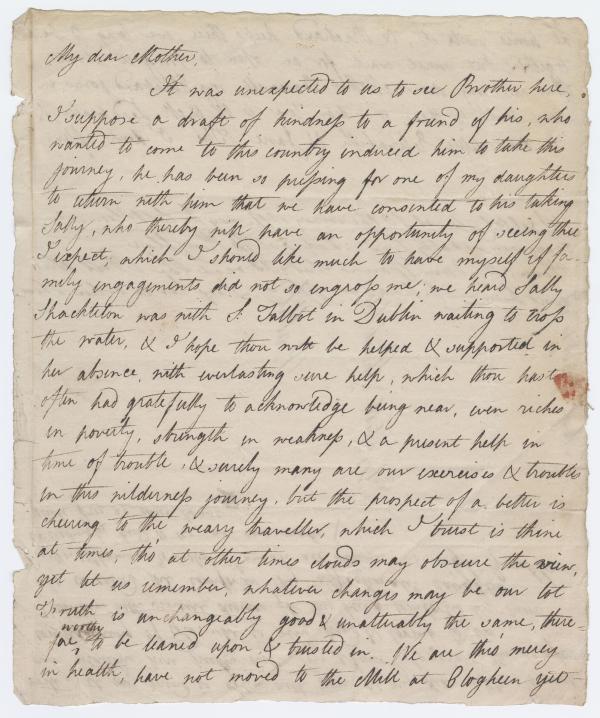 My dear Mother,
It was unexpected to us to see Brother here,
I suppose a draft of kindness to a friend of his, who
wanted to come to this country induced him to take this
journey, he has been so pressing for one of my daughters
to return with him that we have consented to his taking
Sally, who thereby will have an opportunity of seeing thee
I expect, which I should like much to have myself if fa-
mily engagements did not so engross me; we heard Sally
Shackleton was with S. Talbot in Dublin waiting to cross
the water, & I hope thou wilt be helped & supported in
her absence, with everlasting sure help, which thou hast
often had gratefully to acknowledge being near, even riches
in poverty, strength in weakness, & a present help in
time of trouble, & surely many are our exercises & troubles
in this wilderness journey, but the prospect of a better is
cheering to the weary traveller, which I trust is thine
at times, tho' at other times clouds may obscure the view,
yet let us remember, whatever changes may be our lot
Truth is unchangeably good & unalterably the same, there-
fore worthy to be leaned upon & trusted in. We are thro' mercy
in health, have not moved to the Mill at Clogheen yet